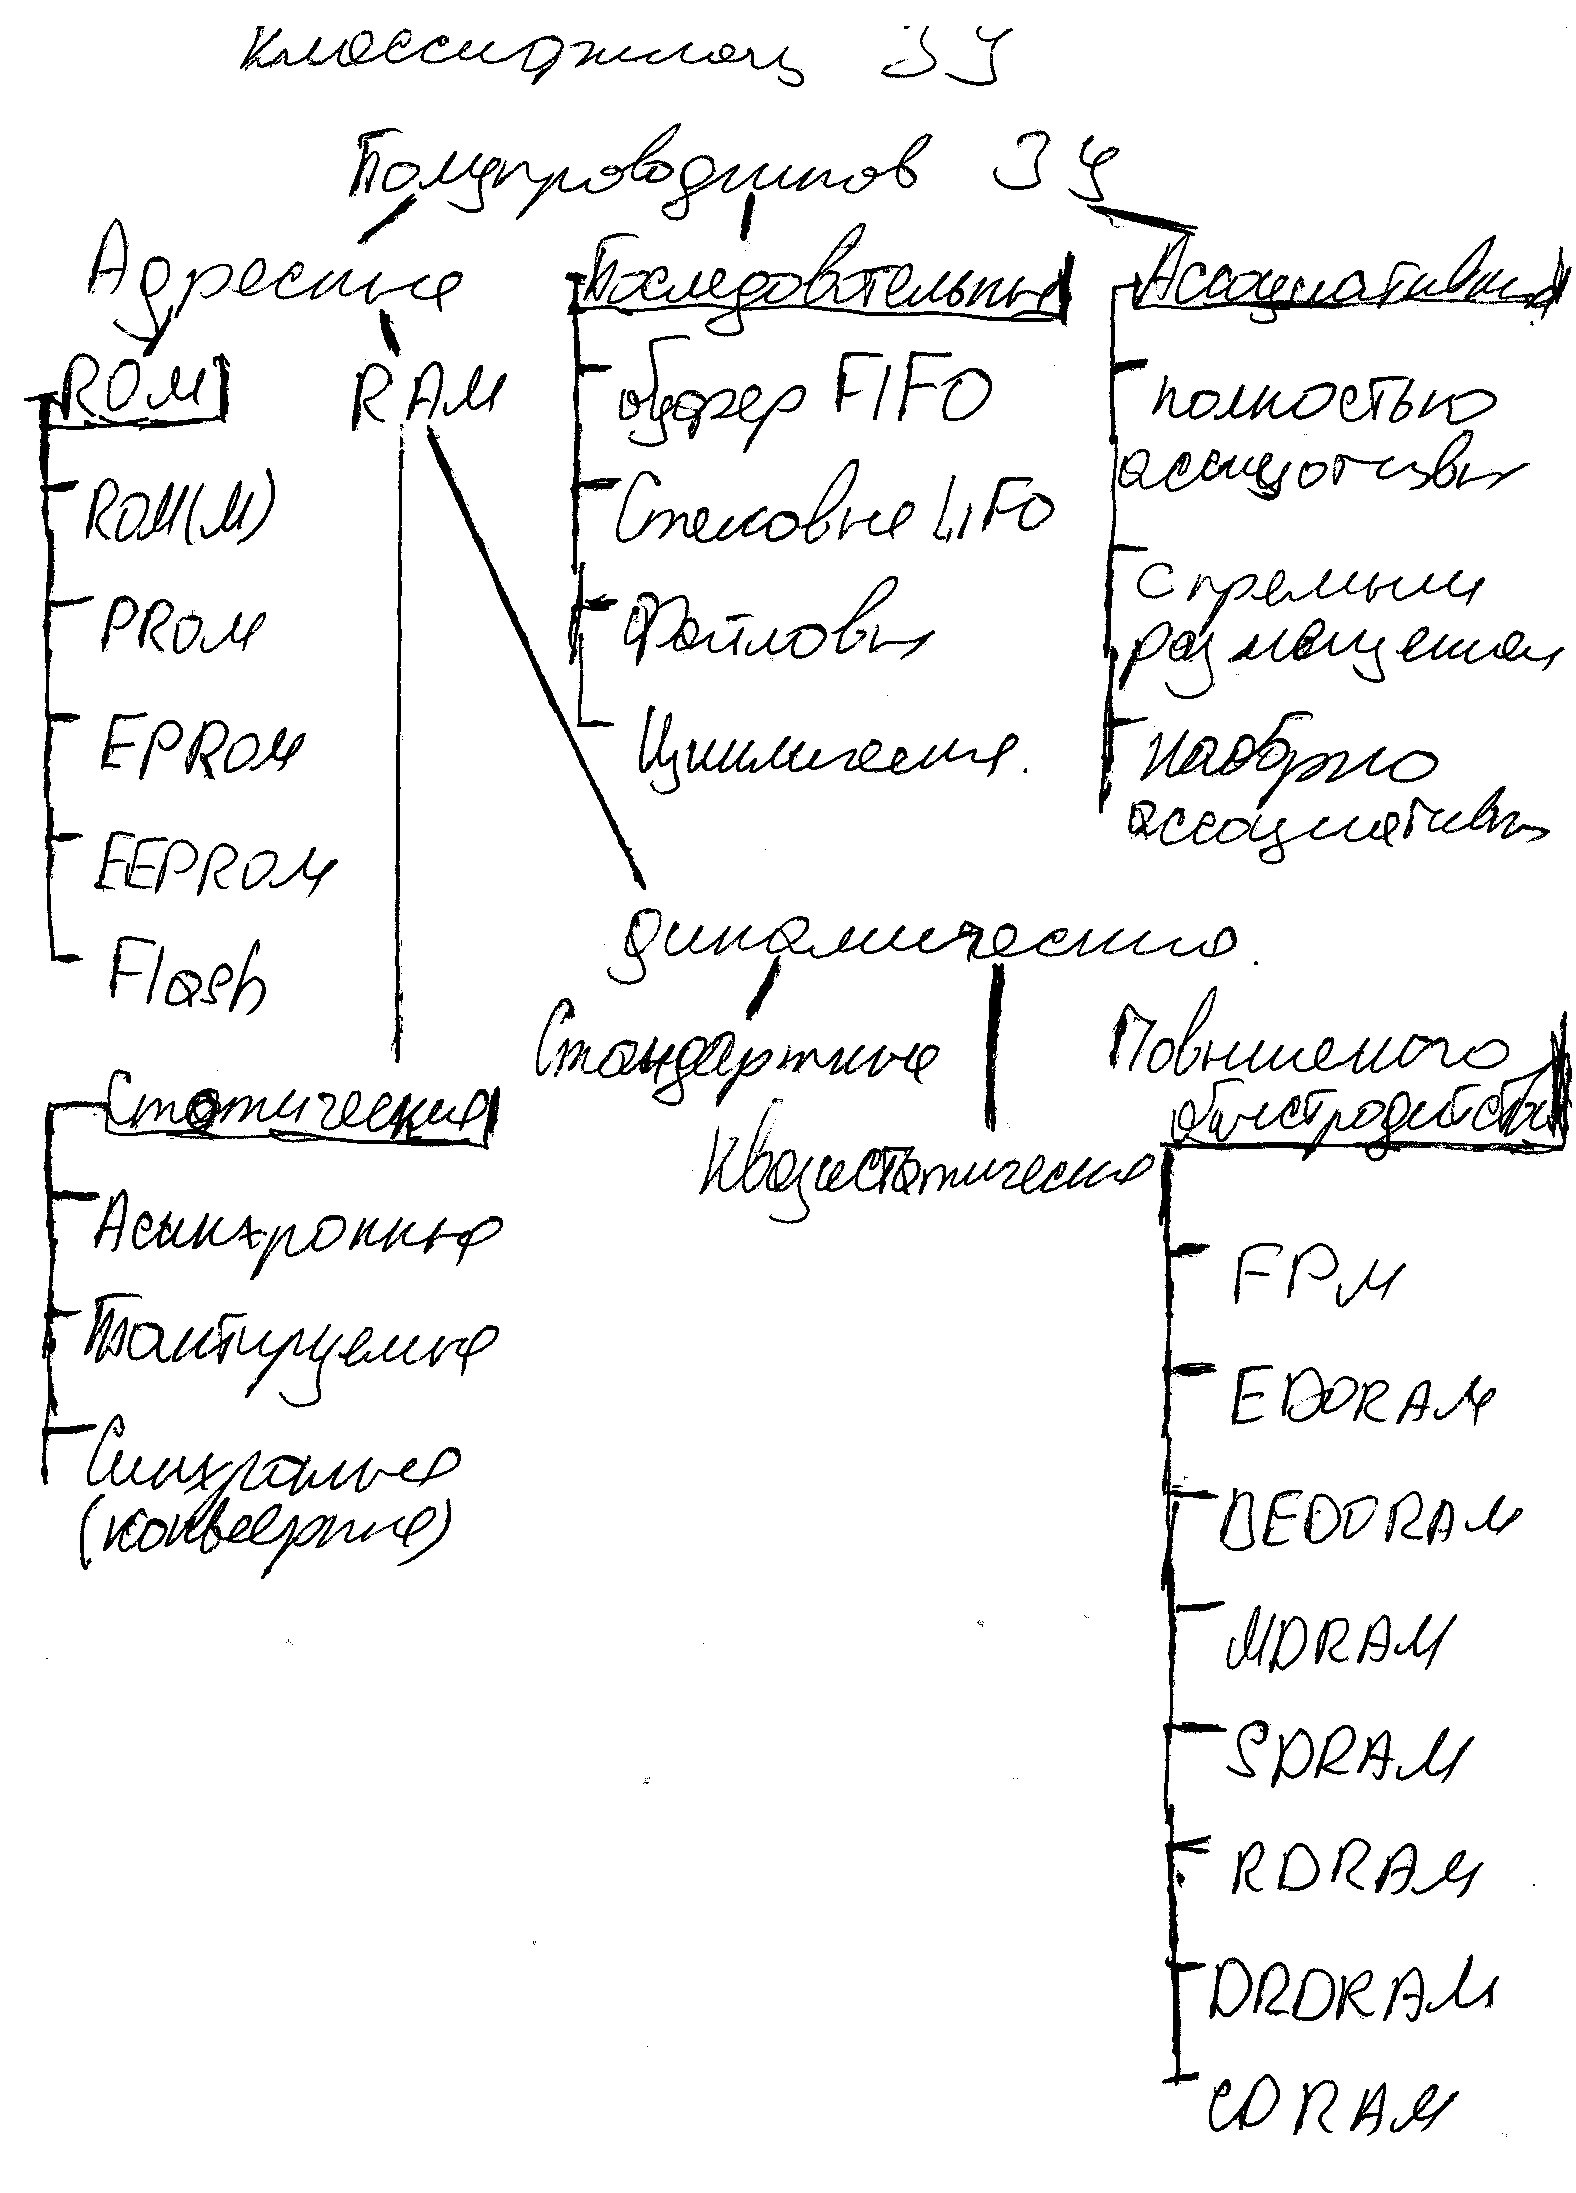 Классификац ЗУ
Полупроводников ЗУ
Адресные
ROM
ROM(M)
PROM
EPROM
EEPROM
Flash
RAM
Последовательные
буфер FIFO
Стековые LIFO
Файловы
Циклические.
Ассоциативные
полностью
ассоциотивн
с прямым
размещением
наборно
ассоциативн
динамические.
Стандартные
Квазистатические
Повышеного
быстродейств
FPM
EDORAM
BEDORAM
MDRAM
SDRAM
RDRAM
DRDRAM
CDRAM
Статические
Асинхронные
Тактируемые
Синхронные
(конвеерные)